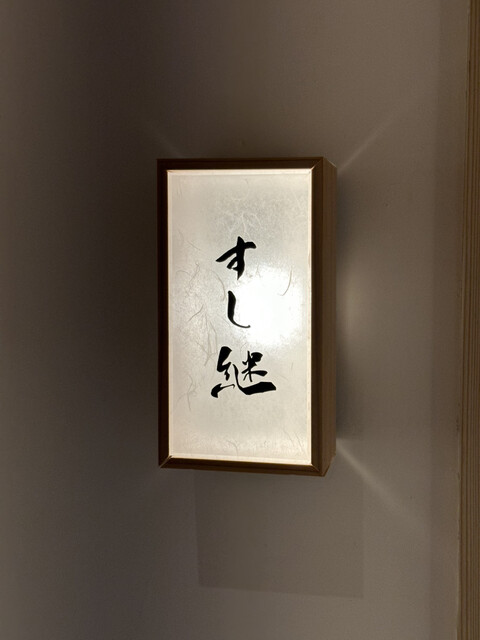 すし継